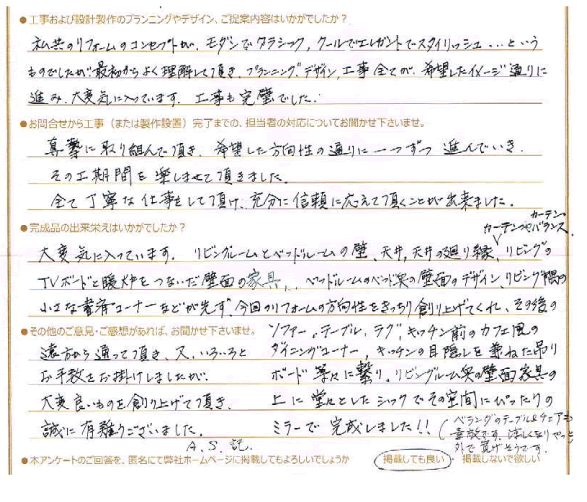 ●工事および設計製作のプランニングやデザイン、ご提案内容はいかがでしたか？
私共のリフォームのコンセプトが、モダンでクラシック、クールでエレガントでスタイリッシュ…という
ものでしたが最初からよく理解して頂き、プランニング、デザイン、工事全てが、希望したイメージ通りに
進み、大変気に入っています。工事も完璧でした。
●お問合せから工事（または製作設置）完了までの、担当者の対応についてお聞かせ下さいませ。
真摯に取り組んで頂き、希望した方向性の通りに一つずつ進んでいき、
その工期間を楽しませて頂きました。
全て丁寧な仕事をして頂け、充分に信頼に応えて頂くことが出来ました。
●完成品の出来栄えはいかがでしたか？
カーテンの
カーテンやバランス、
大変気に入っています。リビングルームとベッドルームの壁、天井、天井の廻り縁、リビングの
TVボードと暖炉をつないだ壁面の家具、ベッドルームのベッド側の壁面のデザイン、リビング隅の
小さな書斎コーナーなどが先ず、今回のリフォームの方向性をきっちり創り上げてくれ、その後の
ソファー、テーブル、ラグ、キッチン前のカフェ風の
ダイニングコーナー、キッチンの目隠しを兼ねた吊り
ボード等々に繋り、リビングルーム側の壁面家具の
上に堂々としたシックでその空間にぴったりの
ミラーで完成しました!!
（ベランダのテーブル&チェアも
素敵です。涼しくなりやっと
外で寛げそうです。
●その他のご意見・ご感想があれば、お聞かせ下さいませ。
遠方から通って頂き、又、いろいろと
お手数をお掛けしましたが、
大変良いものを創り上げて頂き、
誠に有難うございました。
A.S.記
●本アンケートのご回答を、匿名にて弊社ホームページに掲載してもよろしいでしょうか
掲載しても良い ・ 掲載しないで欲しい